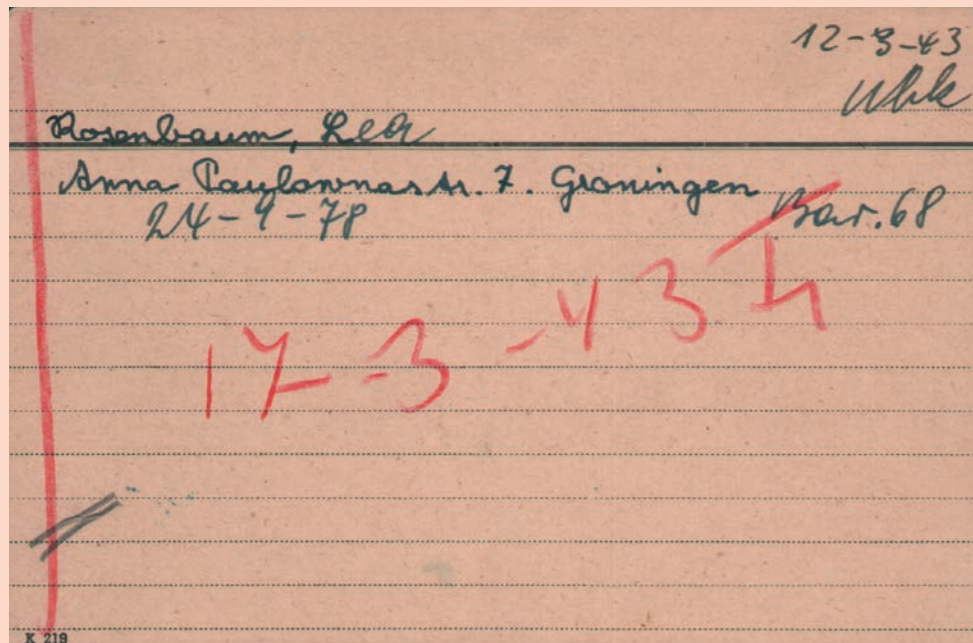 12-3-43
Rosenbaum, Lea
Anna Paulownastr. 7. Groningen
24-9-78 Bar. 68
17-3-43
K 219